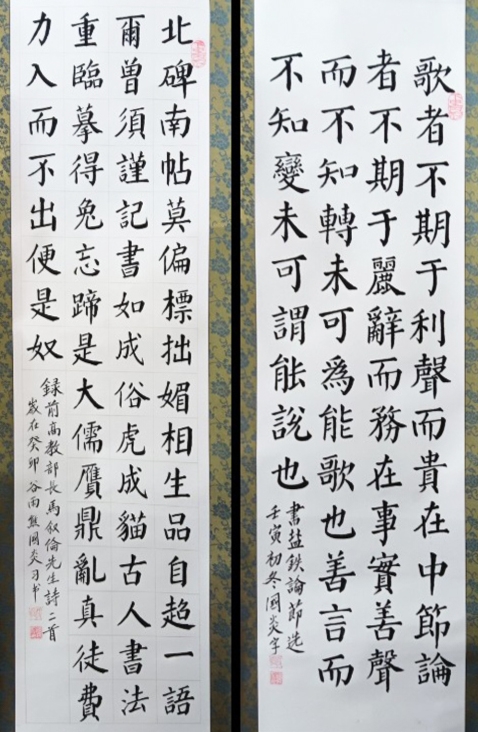 歌者不期于利聲而貴在中節論
者不期于麗辭而務在事實善聲
而不知轉未可爲能歌也善言而
不知變未可謂能說也
書盐鉄論節选
壬寅初冬國炎字
北碑南帖莫偏標拙媚相生品自超一語
爾曾須謹記書如成俗虎成貓古人書法
重臨摹得兔忘蹄是大儒贋鼎亂真徒費
力入而不出便是奴
録前高教部長馬叙倫先生詩二首
歲在癸卯谷雨國炎习书